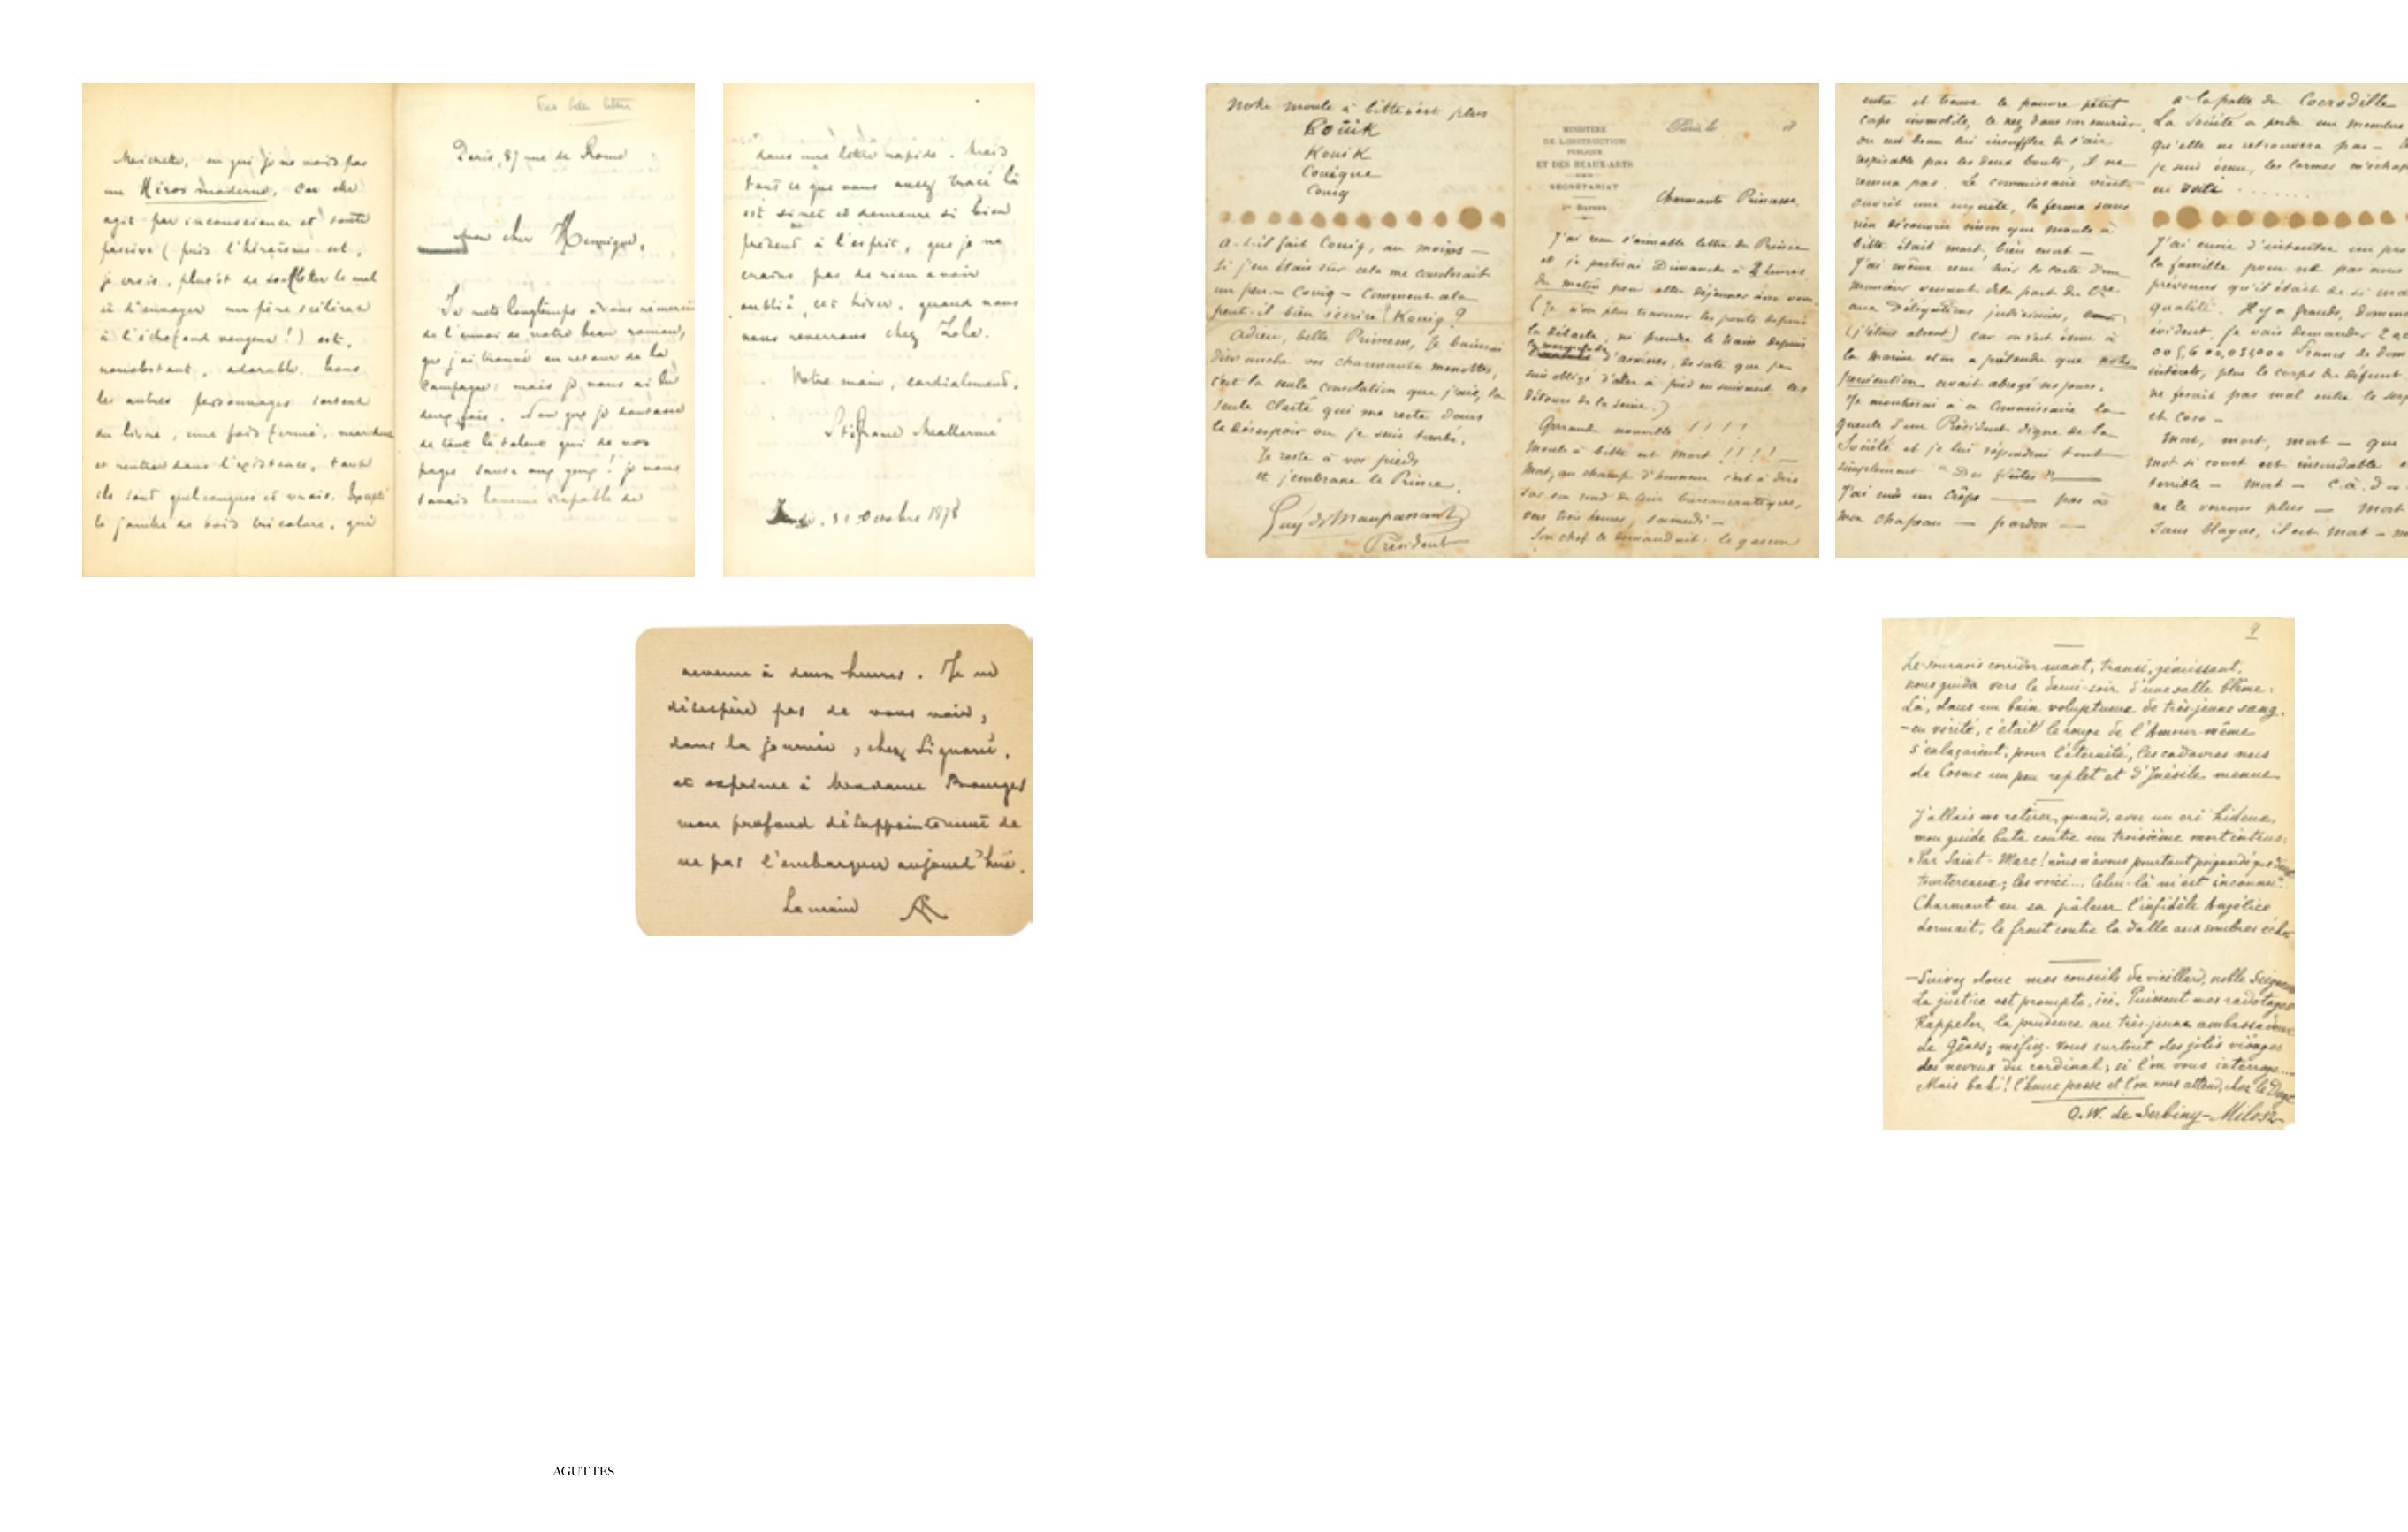 Très belle lettre
Paris, 87 rue de Rome
mon cher Hennique,
Je mets longtemps à vous remercier
de l'envoi de votre beau roman,
que j'ai trouvé au retour de la
campagne : mais je vous ai lu
deux fois. Non que je doutasse
de tout le talent qui de vos
pages saute aux yeux ! je vous
savais homme capable de
en qui je ne vois pas
un Héros moderne, car elle
agit par inconscience et toute
passive ( puis l'héroïsme est,
je crois, plutôt de souffleter le mal
et d'envoyer un père scélérat
à l'échafaud vengeur ! ) est,
nonobstant, adorable. Tous
les autres personnages sortent
du livre, une fois fermé, marchent
et rentrent dans l'existence, tant
ils sont quelconques et vrais. Excepté
la jambe de bois tricolore, qui
dans une lettre rapide. Mais
tout ce que vous avez tracé là
est si net et demeure si bien
présent à l'esprit, que je ne
crains pas de rien avoir
oublié, cet hiver, quand nous
nous reverrons chez Zola.
Votre main, cordialement,
Stéphane Mallarmé
31 Octobre 1878
revenue à deux heures. Je ne
désespère pas de vous voir,
dans la journée, chez
et exprime à Madame Bourges
mon profond désappointement de
ne pas l'embarquer aujourd'hui.
La main
Notre moule à bitte n'est plus
Couïk
Kouik
Couique
Couiq
A-t-il fait Couiq, au moins —
Si j'en étais sûr cela me consolerait
un peu — Couiq — Comment cela
peut-il bien s'écrire ? Kouig ?
Adieu, belle Princesse, Je baiserai
dimanche vos charmantes menottes,
c'est la seule consolation que j'aie, la
seule clarté qui me reste dans
le désespoir où je suis tombé.
Je reste à vos pieds
et j'embrasse le Prince.
Guy de Maupassant
Président
MINISTÈRE
DE L'INSTRUCTION
PUBLIQUE
ET DES BEAUX-ARTS
SECRÉTARIAT
Bureau
Paris le 18
Charmante Princesse,
J'ai reçu l'aimable lettre du Prince
et je partirai Dimanche à 2 heures
du matin pour aller déjeuner avec vous
(Je n'ose plus traverser les ponts depuis
la débâcle, ni prendre le train depuis
d'Asnières, de sorte que je
suis obligé d'aller à pied en suivant les
détours de la Seine.)
Grrrande nouvelle !!!!
Moule à bitte est mort !!!! —
Mort, au champ d'honneur c'est à dire
sur son rond de cuir bureaucratique,
vers trois heures, samedi —
Son chef le demandait : le garçon
entre et trouve le pauvre petit
corps immobile, le nez dans son encrier.
on eut beau lui insuffler de l'air
respirable par les deux bouts, il ne
remua pas. Le commissaire
ouvrit une enquête, la ferma sans
rien découvrir sinon que Moule à
bitte était mort, bien mort —
J'ai même reçu hier la carte d'un
monsieur venant de la part du
aux Délégations judiciaires,
(j'étais absent) car on s'est ému à
la Marine et on a prétendu que notre
persécution avait abrégé ses jours.
Je montrerai à ce Commissaire la
gueule d'un Président digne de la
Société et je lui répondrai tout
simplement "Des flûtes" —
J'ai mis un Crêpe — pas à
mon chapeau — pardon —
a la patte du Cocrodille
La Société a perdu un membre
qu'elle ne retrouvera pas —
je suis ému, les larmes
J'ai envie d'intenter un
la famille pour ne pas nous
prévenus qu'il était de si
qualité. Il y a fraude,
évident. Je vais demander
francs de
intérêts, plus le corps du défunt
ne ferait pas mal entre le
et Coco —
Mort, mort, mort — que
mot si court est insondable
terrible — Mort — c.à.d —
ne le verrons plus — Mort
Sans blague, il est mort —
9
Le sournois corridor suant, transi, gémissant,
nous guida vers le demi-soir d'une salle blême :
Là, dans un bain voluptueux de très-jeune sang,
— en vérité, c'était le rouge de l'Amour même —
s'enlaçaient, pour l'éternité, les cadavres nus
de Cosme un peu replet et d'Inésile menue
J'allais me retirer, quand, avec un cri hideux,
mon guide buta contre un troisième mort intrus :
« Par Saint-Marc ! nous n'avons pourtant poignardé que deux
tourtereaux ; les voici... Celui-là m'est inconnu ».
Charmant en sa pâleur l'infidèle Angélico
dormait, le front contre la dalle aux sombres échos
— Suivez donc mes conseils de vieillard, noble Seigneur
La justice est prompte, ici. Puissent mes radotages
Rappeler la prudence au très-jeune ambassadeur
de Gênes ; méfiez-vous surtout des jolis visages
des neveux du cardinal ; si l'on vous interroge...
Mais bah ! l'heure passe et l'on nous attend, chez le Doge
O. W. de Serbiny-Milosz
AGUTTES